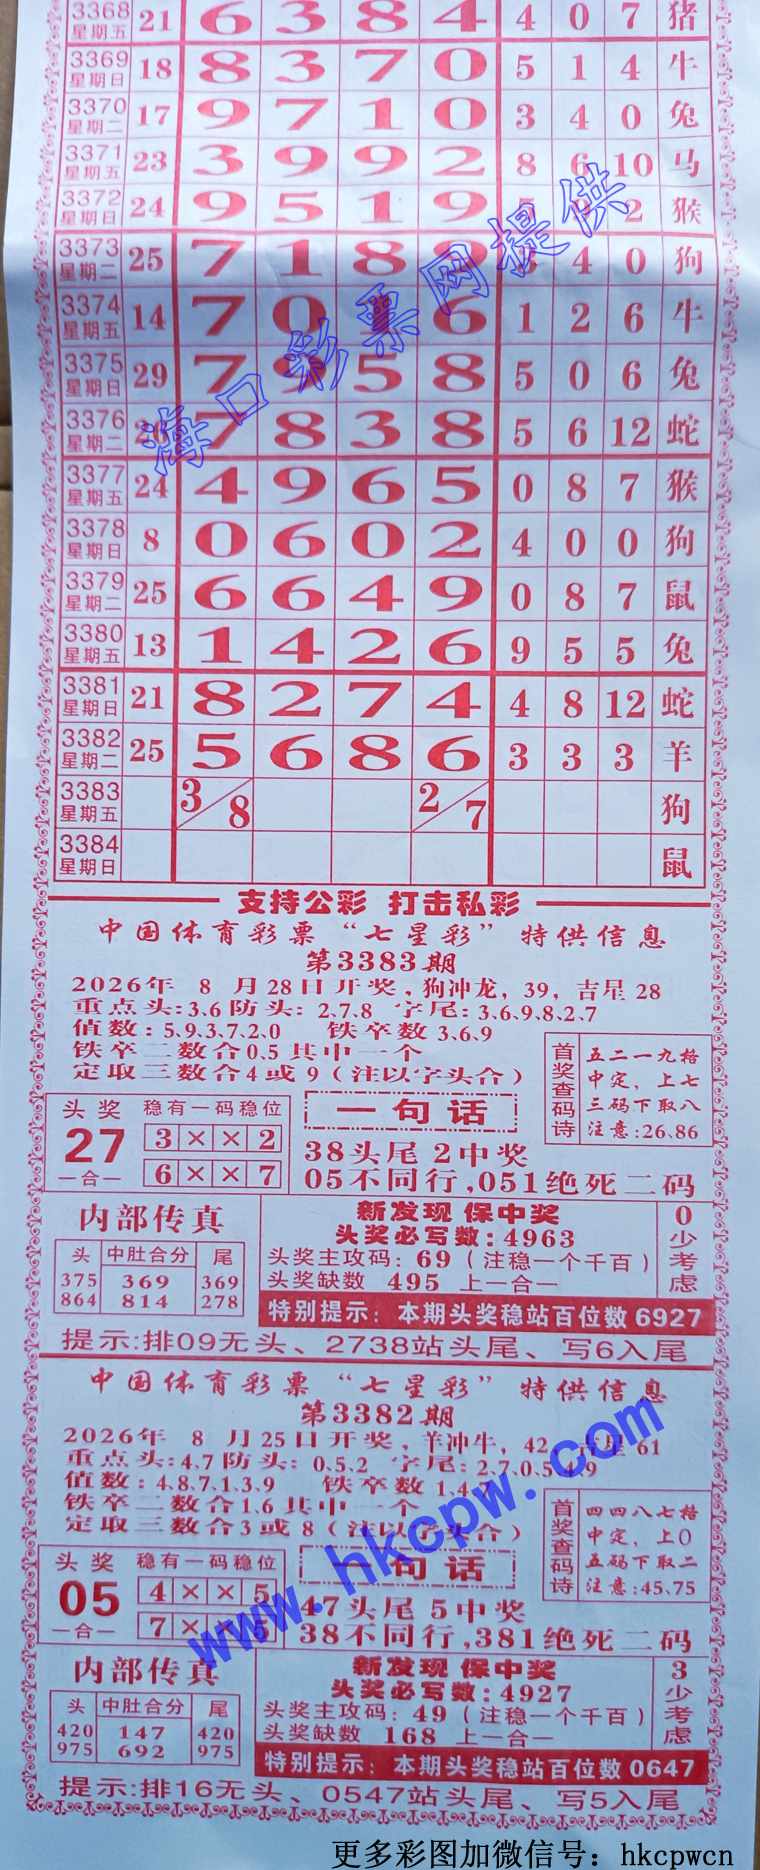 3368 星期五 21 6 3 8 4 4 0 7 猪
3369 星期日 18 8 3 7 0 5 1 4 牛
3370 星期二 17 9 7 1 0 3 4 0 兔
3371 星期五 23 3 9 9 2 8 6 10 马
3372 星期日 24 9 5 1 9 5 8 2 猴
3373 星期二 25 7 1 8 9 4 0 狗
3374 星期五 14 7 0 6 1 2 6 牛
3375 星期日 29 7 9 5 8 5 0 6 兔
3376 星期二 26 7 8 3 8 5 6 12 蛇
3377 星期五 24 4 9 6 5 0 8 7 猴
3378 星期日 8 0 6 0 2 4 0 0 狗
3379 星期二 25 6 6 4 9 0 8 7 鼠
3380 星期五 13 1 4 2 6 9 5 5 兔
3381 星期日 21 8 2 7 4 4 8 12 蛇
3382 星期二 25 5 6 8 6 3 3 3 羊
3383 星期五 3/8 2/7 狗
3384 星期日 鼠
海口彩票网提供
支持公彩 打击私彩
中国体育彩票“七星彩”特供信息
第3383期
2026年 8 月28日开奖,狗冲龙,39,吉星28
重点头:3.6防头:2、7.8 字尾:3.6、9、8、2、7
值数:5.9.3.7.2.0 铁卒数3、6、9
铁卒二数合0.5其中一个
定取三数合4或9(注以字头合)
首奖查码诗
五二一九格
中定,上七
三码下取八
注意:26、86
头奖 27 一合一
稳有一码稳位
3 × × 2
6 × × 7
一句话
38头尾2中奖
05不同行,051绝死二码
内部传真
头 中肚合分 尾
375 369 369
864 814 278
新发现 保中奖
头奖必写数:4963
头奖主攻码:69(注稳一个千百)
头奖缺数 495 上一合一
0少考虑
特别提示:本期头奖稳站百位数6927
提示:排09无头、2738站头尾、写6入尾
中国体育彩票“七星彩”特供信息
第3382期
2026年 8 月25日开奖,羊冲牛,42,吉星61
重点头:4.7防头:0.5、2 字尾:2、7、0、5、9
值数:4.8、7、1、3、9 铁卒数1、4、7
铁卒二数合1.6其中一个
定取三数合3或8(注以字头合)
首奖查码诗
四四八七格
中定,上0
五码下取二
注意:45、75
头奖 05 一合一
稳有一码稳位
4 × × 5
7 × × 5
一句话
47头尾5中奖
38不同行,381绝死二码
内部传真
头 中肚合分 尾
420 147 420
975 692 975
新发现 保中奖
头奖必写数:4927
头奖主攻码:49(注稳一个千百)
头奖缺数 168 上一合一
3少考虑
特别提示:本期头奖稳站百位数0647
提示:排16无头、0547站头尾、写5入尾
www.hkcpw.com
更多彩图加微信号:hkcpwcn